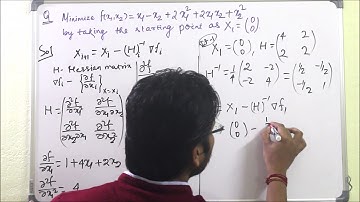 Q Minimize f(x₁,x₂) = x₁-x₂+2x₁²+2x₁x₂+x₂²
by taking the starting point as X₁ = (0 0)
Sol
X_{i+1} = X_i - (H)⁻¹ ∇f_i
H - Hessian matrix
∇f_i - {∂f/∂x_i} X=X_i
H = (∂²f/∂x₁² ∂²f/∂x₁∂x₂
∂²f/∂x₂∂x₁ ∂²f/∂x₂²)
∂f/∂x₁ = 1+4x₁+2x₂
∂²f/∂x₁² = 4
X₁ = (0 0), H = (4 2
2 2)
H⁻¹ = 1/4 (2 -2
-2 4) = (1/2 -1/2
-1/2 1)
= X₁ - (H)⁻¹ ∇f₁
(0 0) -